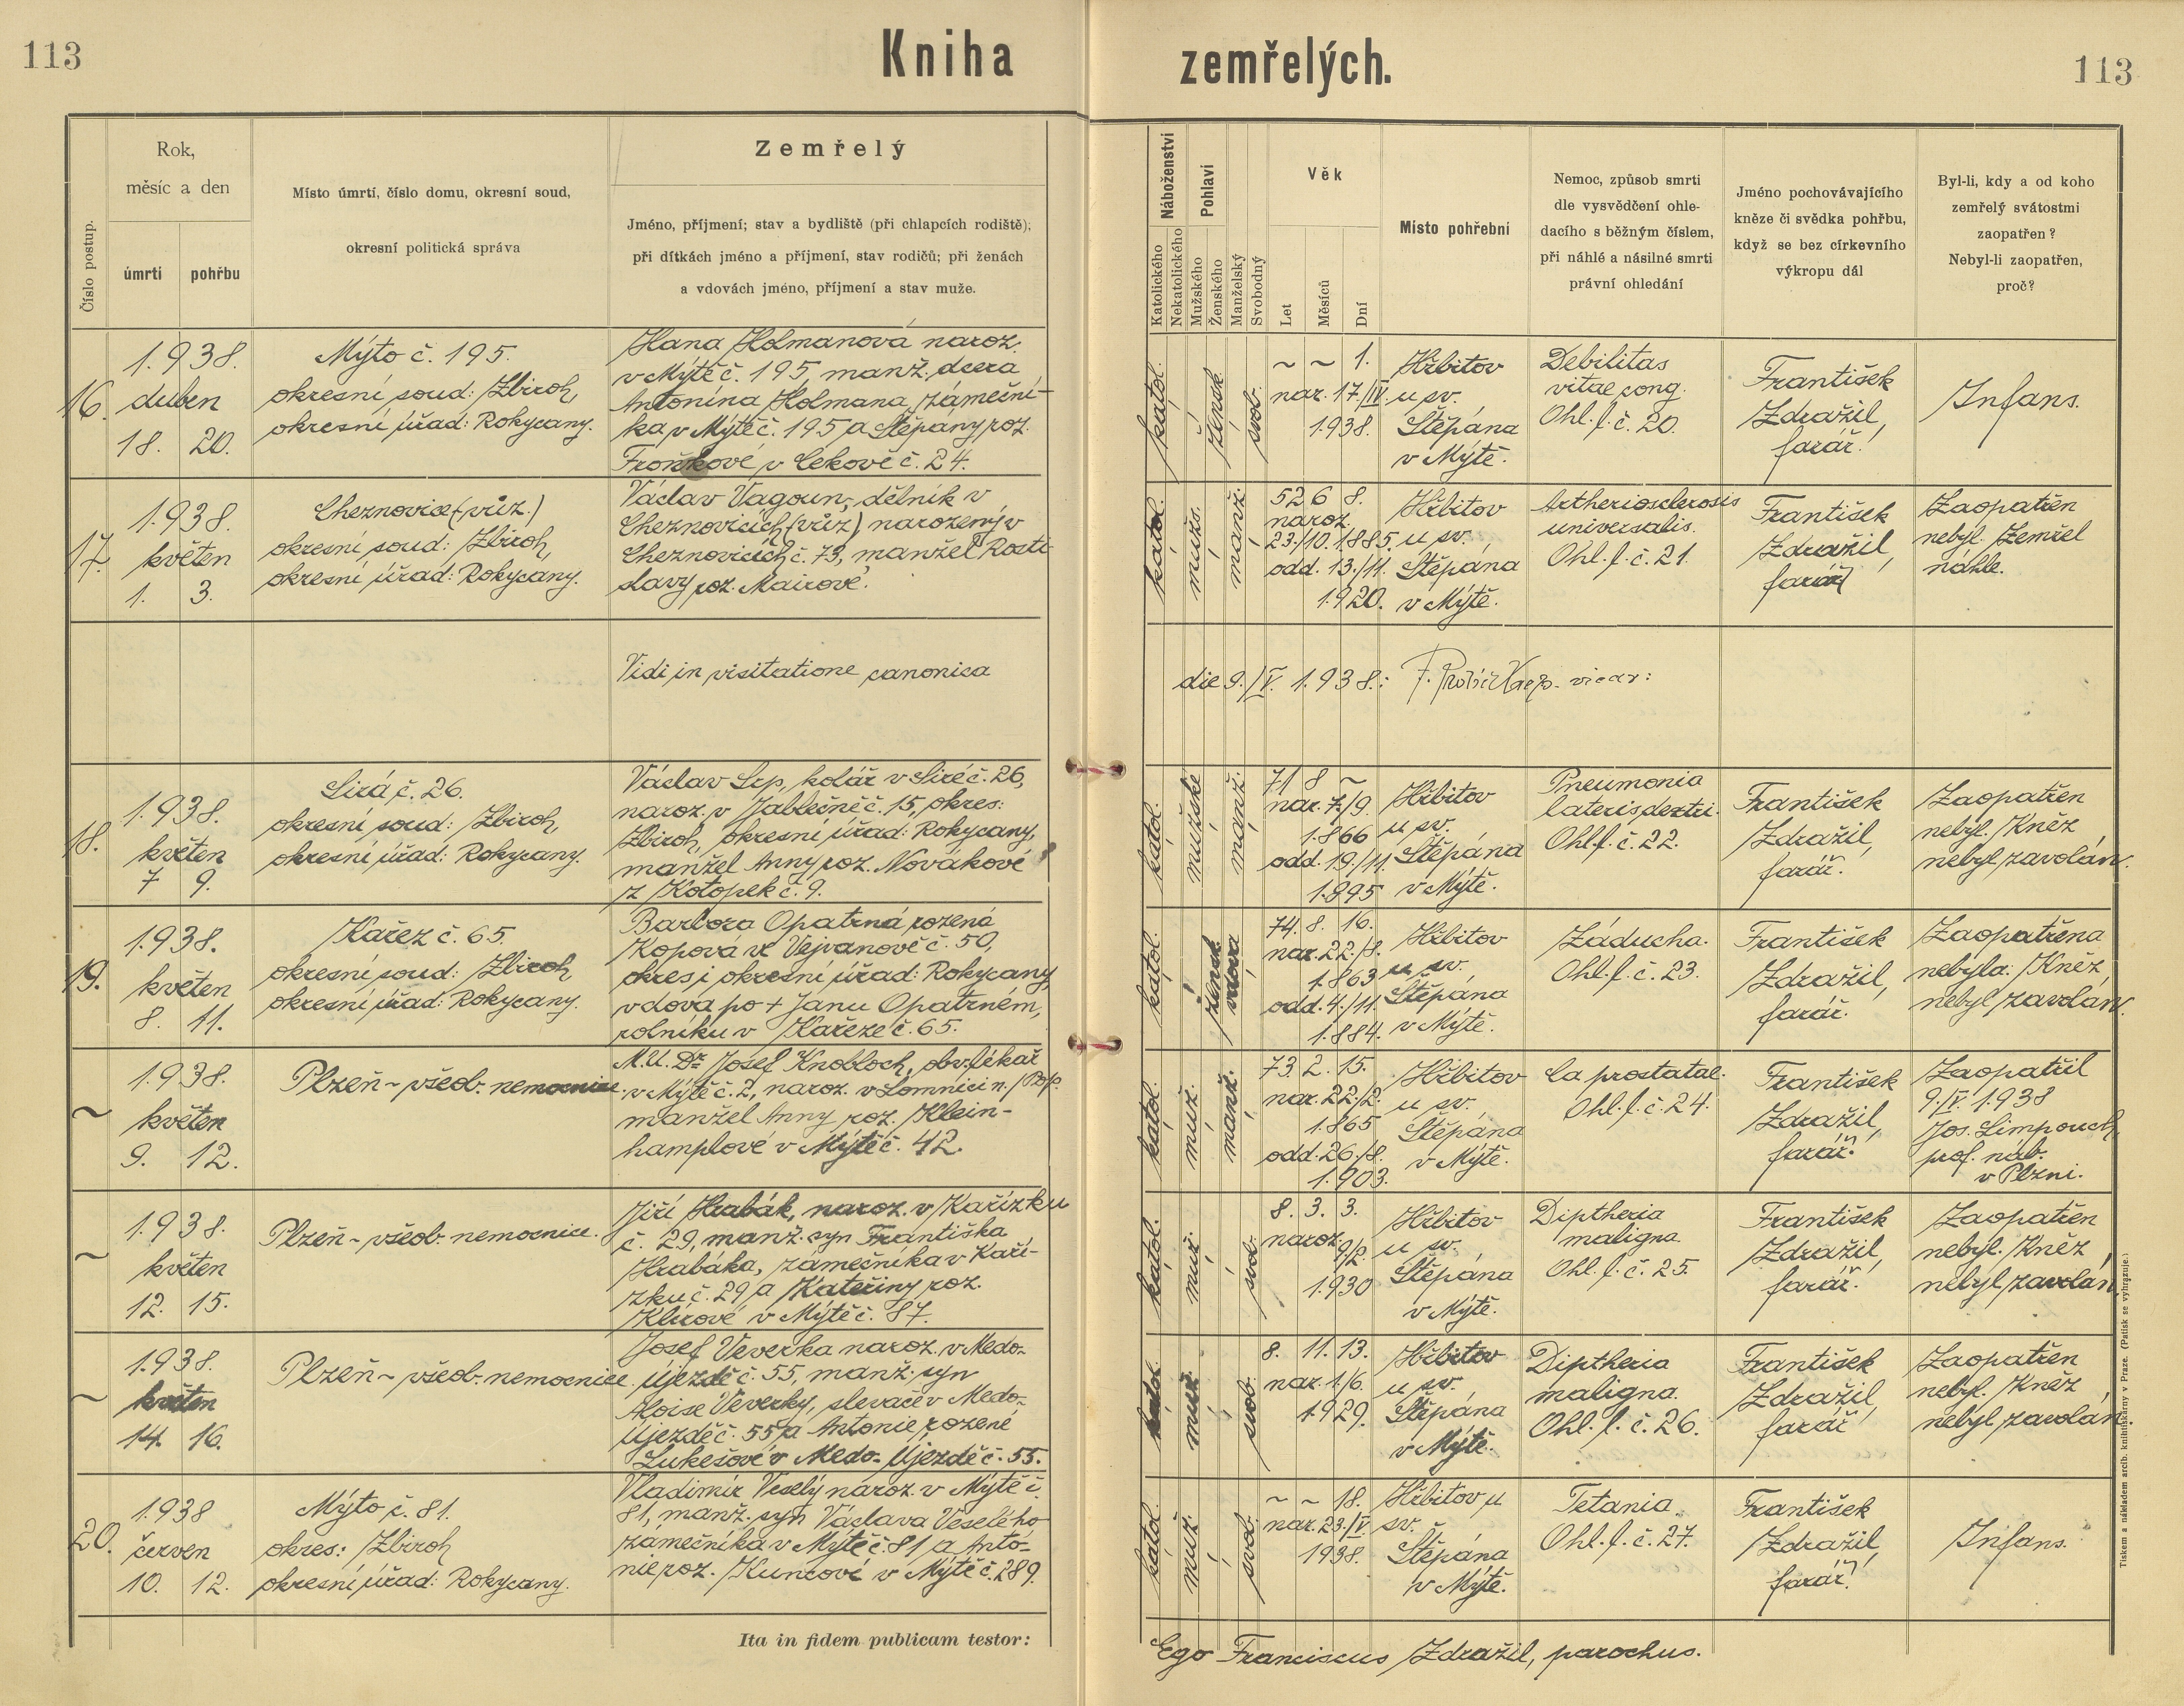 113
Kniha
zemřelých.
113
Číslo postup.
Rok,
měsíc a den
úmrtí
pohřbu
Místo úmrtí, číslo domu, okresní soud,
okresní politická správa
Zemřelý
Jméno, příjmení; stav a bydliště (při chlapcích rodiště);
při dítkách jméno a příjmení, stav rodičů; při ženách
a vdovách jméno, příjmení a stav muže.
Náboženství
Katolického
Nekatolického
Pohlaví
Mužského
Ženského
Manželský
Svobodný
Věk
Let
Měsíců
Dní
Místo pohřební
Nemoc, způsob smrti
dle vysvědčení ohle-
dacího s běžným číslem,
při náhlé a násilné smrti
právní ohledání
Jméno pochovávajícího
kněze či svědka pohřbu,
když se bez církevního
výkropu dál
Byl-li, kdy a od koho
zemřelý svátostmi
zaopatřen?
Nebyl-li zaopatřen,
proč?
16.
1938.
duben
18. 20.
Mýto č. 195.
okresní soud: Zbiroh,
okresní úřad: Rokycany.
Hana Holmanová naroz.
v Mýtě č. 195, manž. dcera
Antonína Holmana, zámeční-
ka v Mýtě č. 195 a Štěpány roz.
Froňkové v Cekově č. 24.
katol.
žensk.
svob.
~ ~ 1.
nar. 17./IV.
1938.
Hřbitov
u sv.
Štěpána
v Mýtě.
Debilitas
vitae cong.
Ohl. l. č. 20.
František
Zdražil,
farář.
Infans.
17.
1938.
květen
1. 3.
Cheznovice (vůz.)
okresní soud: Zbiroh,
okresní úřad: Rokycany.
Václav Vagoun, dělník v
Cheznovicích (vůz), narozený v
Cheznovicích č. 73, manžel Rosti-
slavy roz. Mairové.
katol.
mužs.
manž.
52 6 8.
naroz.
23./10. 1885.
odd. 13./11.
1920.
Hřbitov
u sv.
Štěpána
v Mýtě.
Artheriosclerosis
universalis.
Ohl. l. č. 21.
František
Zdražil,
farář
Zaopatřen
nebyl. Zemřel
náhle.
Vidi in visitatione canonica
die 9./V. 1938.:
vicar:
18.
1938.
květen
7 9.
Sirá č. 26.
okresní soud: Zbiroh,
okresní úřad: Rokycany.
Václav Srp, kolář v Siré č. 26,
naroz. v Jablečně č. 15, okres:
Zbiroh, okresní úřad: Rokycany,
manžel Anny roz. Novákové
z Kotopek č. 9.
katol.
mužské
manž.
71 8 ~
nar. 7./9.
1866
odd. 19./11.
1895
Hřbitov
u sv.
Štěpána
v Mýtě.
Pneumonia
lateris dextri.
Ohl. l. č. 22.
František
Zdražil,
farář.
Zaopatřen
nebyl. Kněz
nebyl zavolán.
19.
1938.
květen
8. 11.
Kařez č. 65.
okresní soud: Zbiroh
okresní úřad: Rokycany.
Barbora Opatrná rozená
Kopová ve Vejvanově č. 50,
okres i okresní úřad: Rokycany,
vdova po + Janu Opatrném,
rolníku v Kařeze č. 65.
katol.
žensk.
vdova
74. 8. 16.
nar. 22./8.
1863
odd. 4./11.
1884.
Hřbitov
u sv.
Štěpána
v Mýtě.
Záducha.
Ohl. l. č. 23.
František
Zdražil,
farář.
Zaopatřena
nebyla. Kněz
nebyl zavolán.
~
1938.
květen
9. 12.
Plzeň ~ všeob. nemocnice.
M.U.Dr Josef Knobloch, obv. lékař
v Mýtě č. 2, naroz. v Lomnici n./Pop.
manžel Anny roz. Klein-
hamplové v Mýtě č. 42.
katol.
muž.
manž.
73. 2. 15.
nar. 22./2.
1865
odd. 26./8.
1903.
Hřbitov
u sv.
Štěpána
v Mýtě.
Ca prostatae.
Ohl. l. č. 24.
František
Zdražil,
farář.
Zaopatřil
9./V. 1938
Jos. Limpouch,
prof. náb.
v Plzni.
~
1938.
květen
12. 15.
Plzeň ~ všeob. nemocnice.
Jiří Hrabák, naroz. v Kařízku
č. 29, manž. syn Františka
Hrabáka, zámečníka v Kaří-
zku č. 29 a Kateřiny roz.
Klírové v Mýtě č. 87.
katol.
muž.
svob.
8. 3. 3.
naroz.
9/2.
1930
Hřbitov
u sv.
Štěpána
v Mýtě.
Diptheria
maligna
Ohl. l. č. 25.
František
Zdražil,
farář.
Zaopatřen
nebyl. Kněz
nebyl zavolán.
~
1938.
květen
14. 16.
Plzeň ~ všeob. nemocnice.
Josef Veverka naroz. v Medo-
Újezdě č. 55, manž. syn
Aloise Veverky, slevače v Medo-
Újezdě č. 55 a Antonie rozené
Lukešové v Medo-Újezdě č. 55.
katol.
muž.
svob.
8. 11. 13.
nar. 1./6.
1929.
Hřbitov
u sv.
Štěpána
v Mýtě.
Diptheria
maligna.
Ohl. l. č. 26.
František
Zdražil,
farář
Zaopatřen
nebyl. Kněz
nebyl zavolán.
20.
1938
červen
10. 12.
Mýto č. 81.
okres: Zbiroh
okresní úřad: Rokycany.
Vladimír Veselý naroz. v Mýtě č.
81, manž. syn Václava Veselého
zámečníka v Mýtě č. 81 a Anto-
nie roz. Kuncové v Mýtě č. 289.
katol.
muž.
svob.
~ ~ 18.
nar. 23./V
1938.
Hřbitov u
sv.
Štěpána
v Mýtě.
Tetania.
Ohl. l. č. 27.
František
Zdražil,
farář.
Infans.
Ita in fidem publicam testor:
Ego Franciscus Zdražil, parochus.
Tiskem a nákladem arcib. knihtiskárny v Praze. (Patisk se vyhrazuje.)